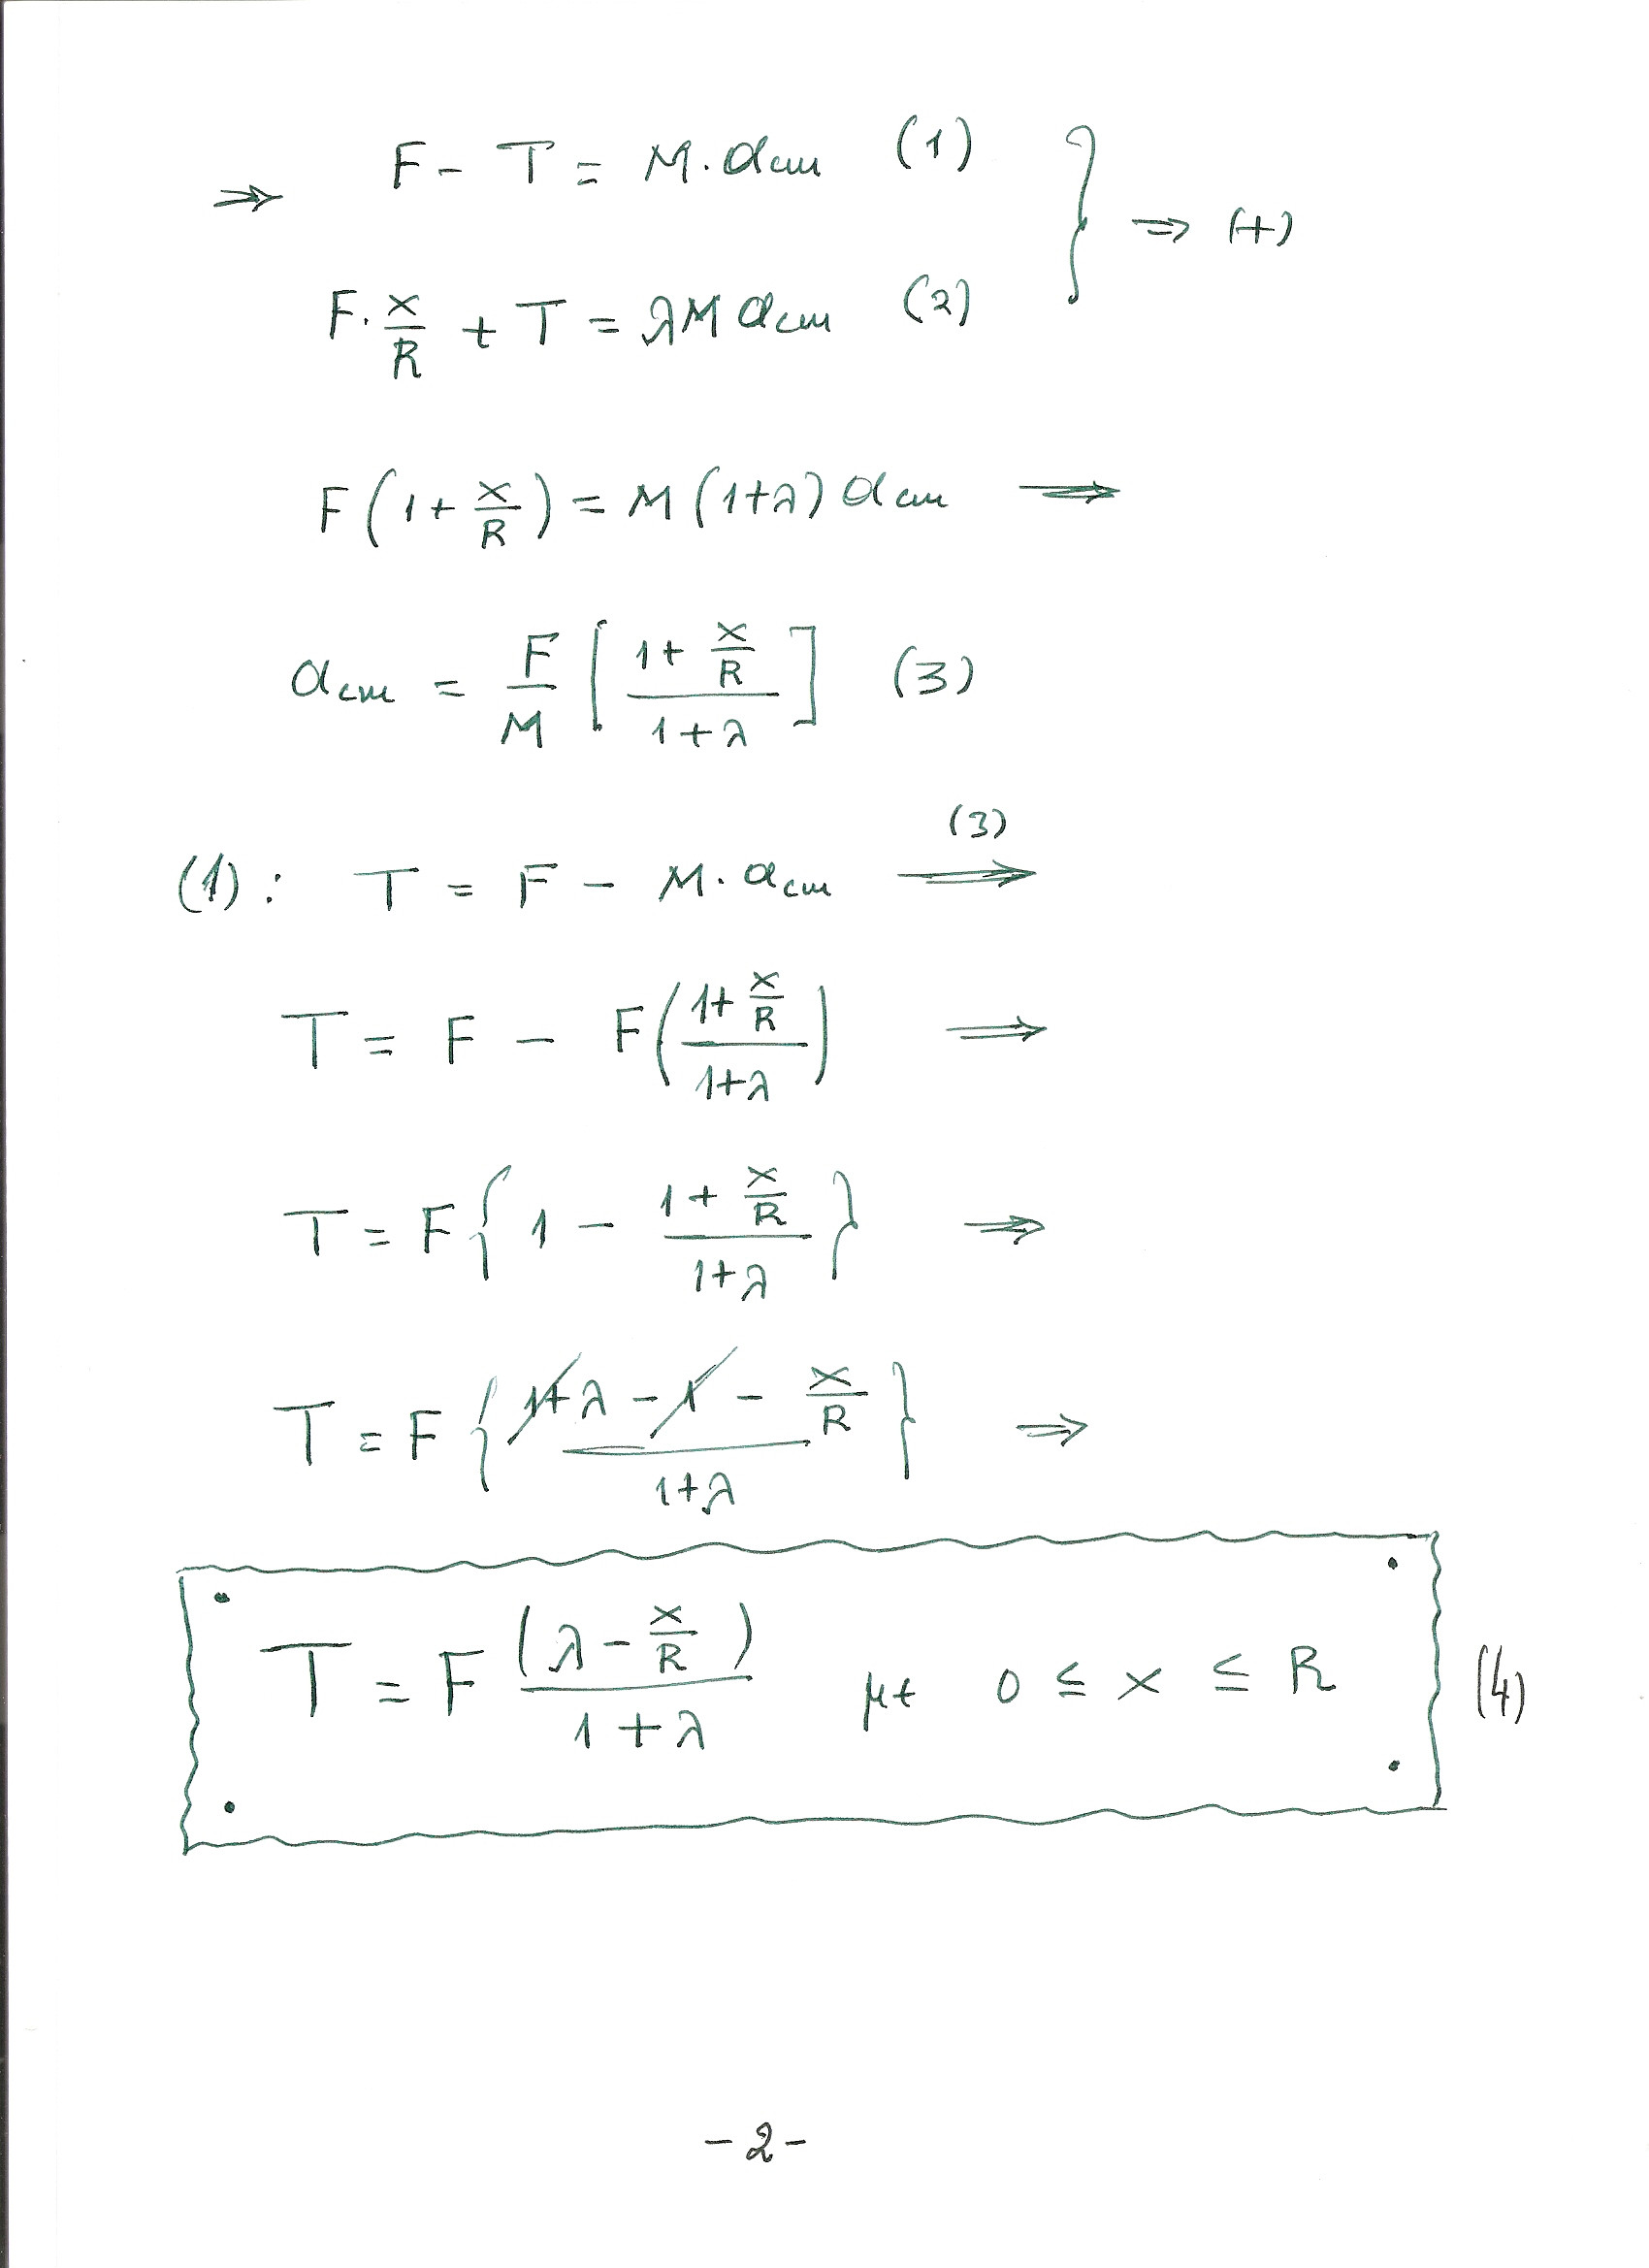 ⇒ F - T = M·αcm (1) } ⇒ (+)
F·x/R + T = λM αcm (2)
F(1 + x/R) = M(1+λ) αcm ⇒
αcm = F/M [(1 + x/R)/(1+λ)] (3)
(1): T = F - M·αcm (3)⇒
T = F - F((1 + x/R)/(1+λ)) ⇒
T = F{1 - (1 + x/R)/(1+λ)} ⇒
T = F{(1+λ - 1 - x/R)/(1+λ)} ⇒
T = F (λ - x/R)/(1+λ) με 0 ≤ x ≤ R (4)
- 2 -